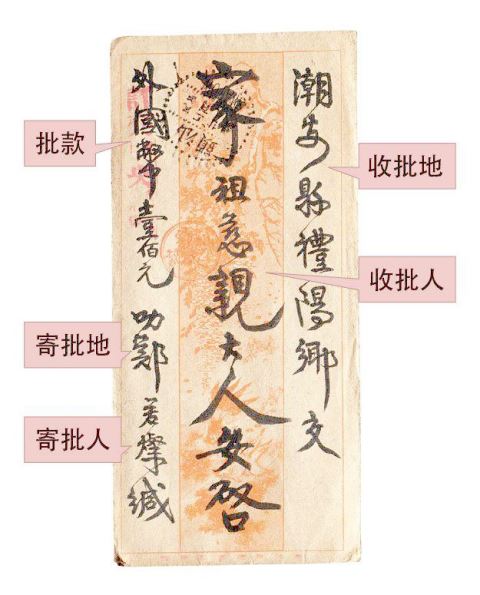 潮安縣禮陽鄉交
家祖慈親大人安啓
外國幣壹佰元
叻鄭若㷮緘
批款
寄批地
寄批人
收批地
收批人